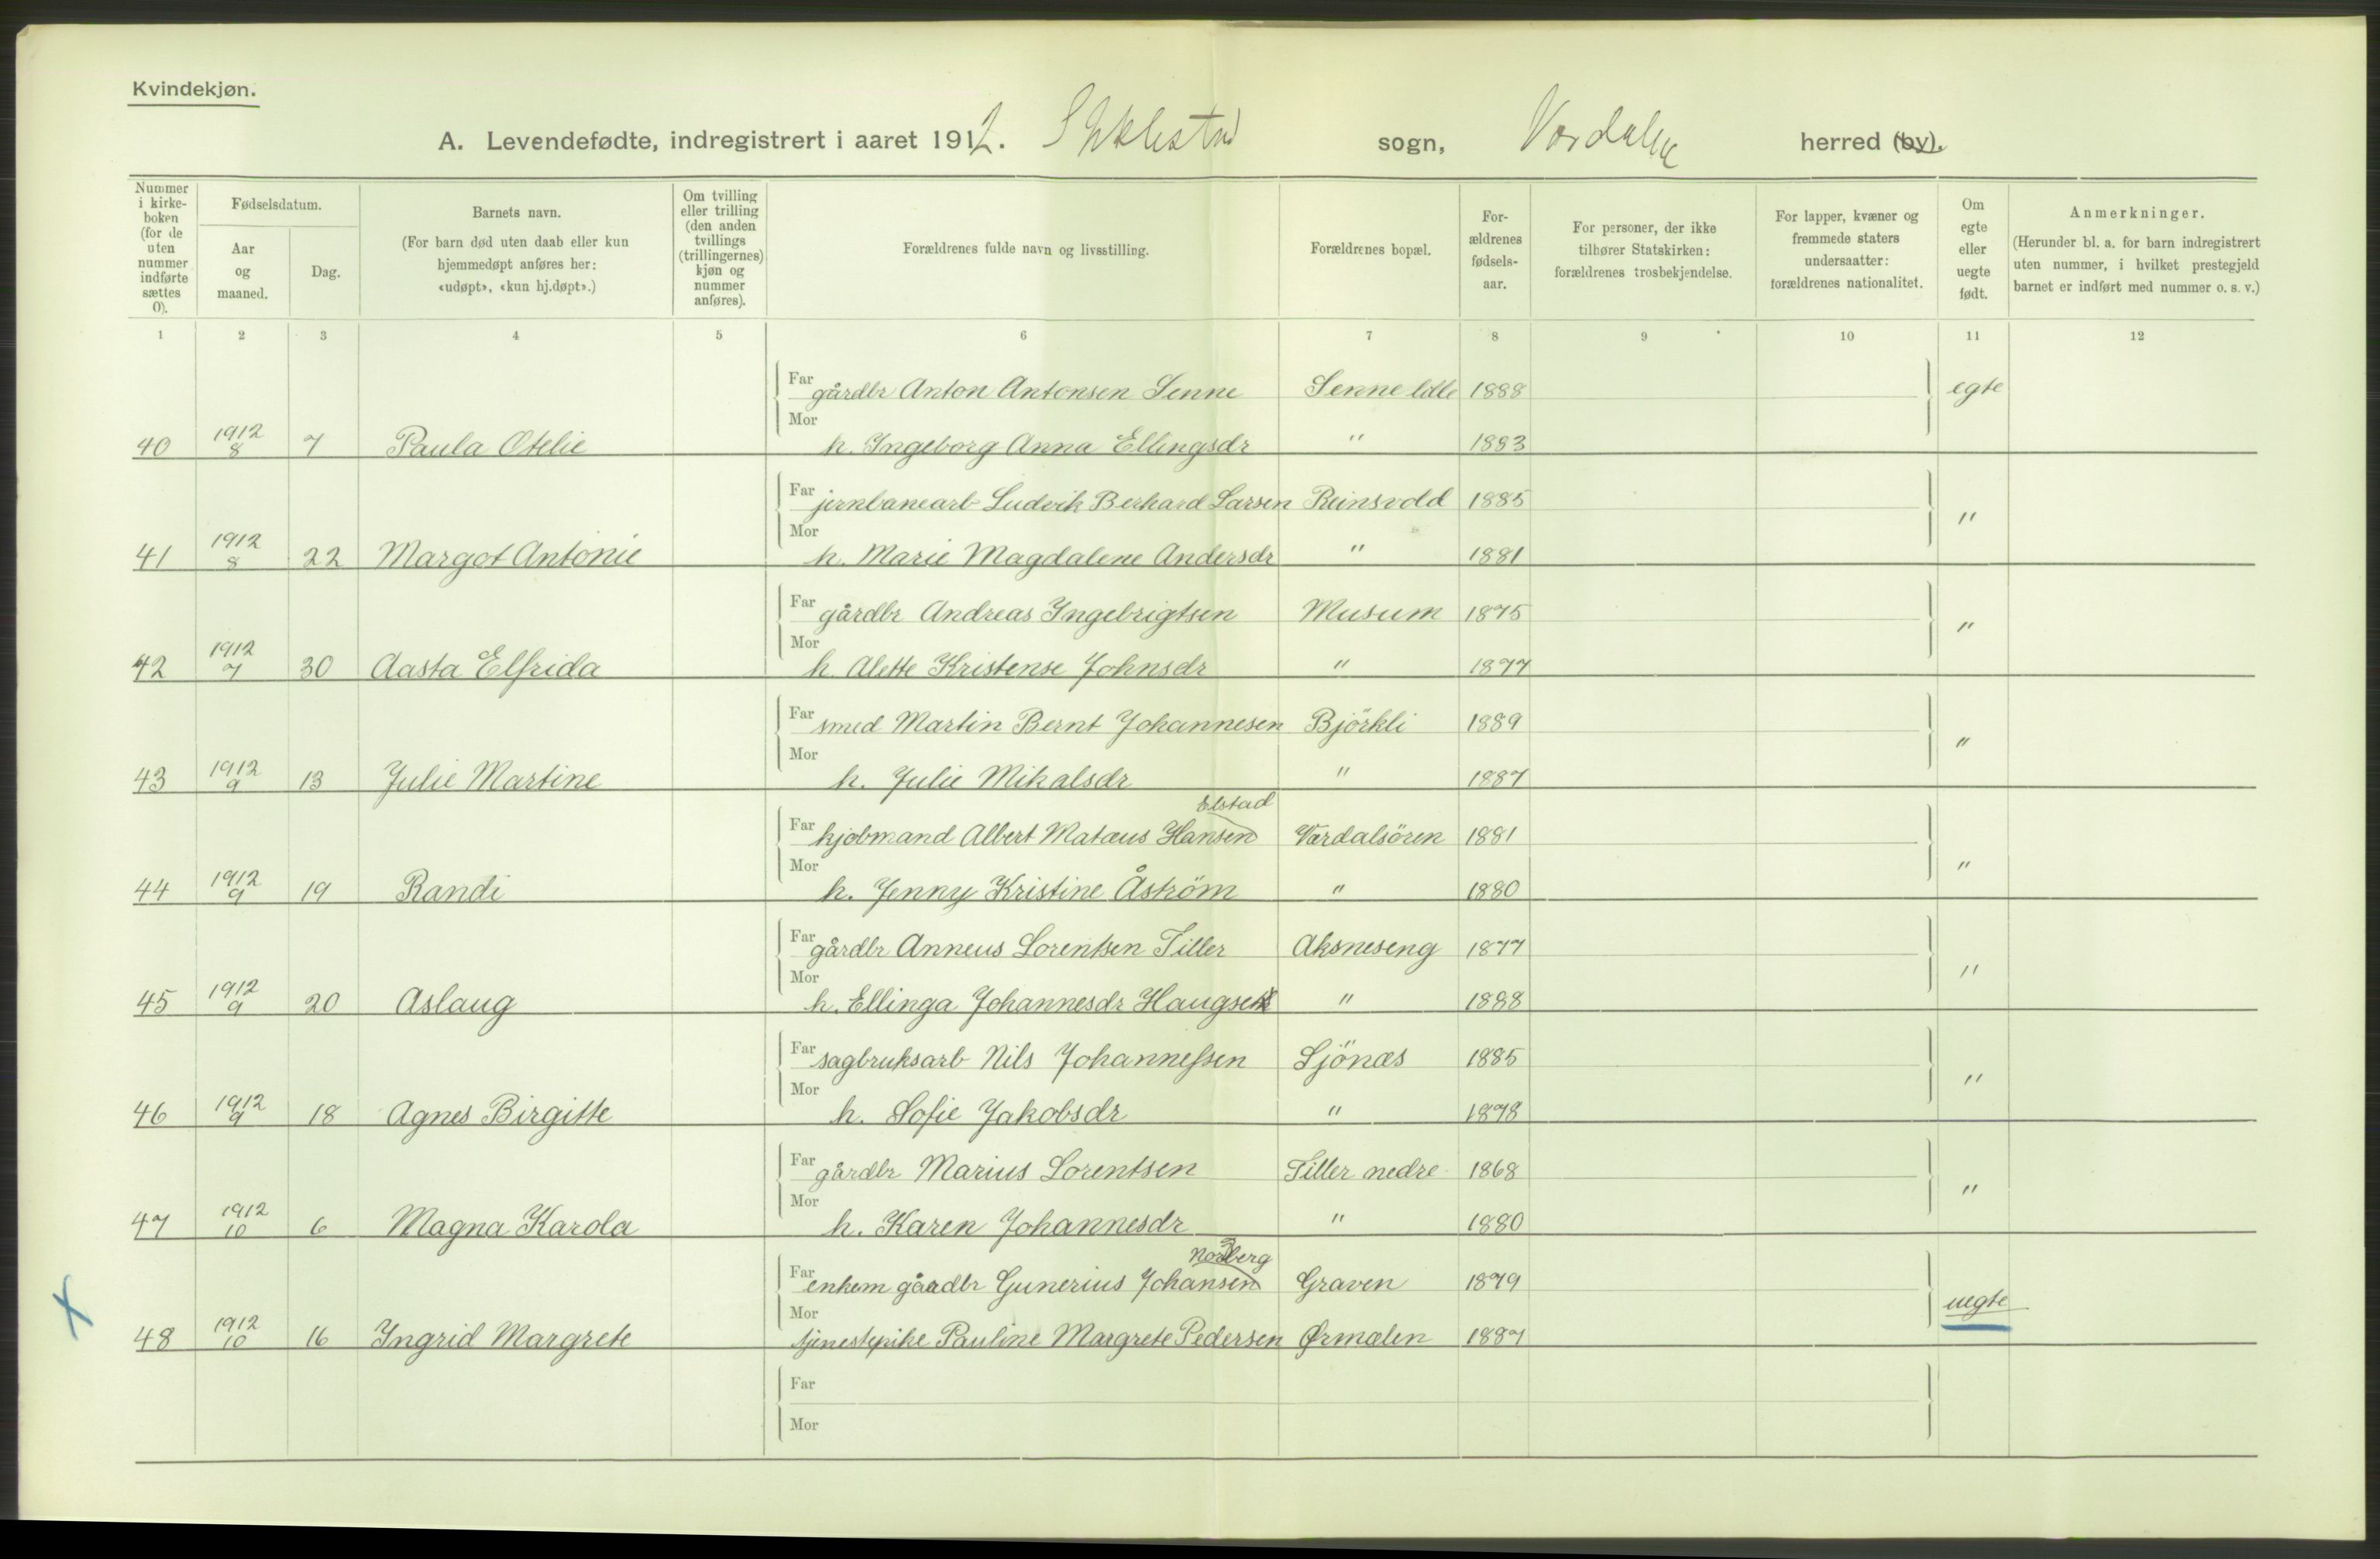 Kvindekjøn.
A. Levendefødte, indregistrert i aaret 1912. Stiklestad sogn, Værdalen herred (by).
Nummer i kirke-boken (for de uten nummer indførte sættes 0).
Fødselsdatum.
Aar og maaned.
Dag.
Barnets navn.
(For barn død uten daab eller kun hjemmedøpt anføres her: «udøpt», «kun hj.døpt».)
Om tvilling eller trilling (den anden tvillings (trillingernes) kjøn og nummer anføres).
Forældrenes fulde navn og livsstilling.
Forældrenes bopæl.
For-ældrenes fødsels-aar.
For personer, der ikke tilhører Statskirken: forældrenes trosbekjendelse.
For lapper, kvæner og fremmede staters undersaatter: forældrenes nationalitet.
Om egte eller uegte født.
Anmerkninger.
(Herunder bl. a. for barn indregistrert uten nummer, i hvilket prestegjeld barnet er indført med nummer o. s. v.)
1 2 3 4 5 6 7 8 9 10 11 12
Far gårdbr Anton Antonsen Senne Senne lille 1888 egte
Mor
40 1912 8 7 Paula Otelie h. Ingeborg Anna Ellingsdr " 1883
Far jernbanearb Ludvik Berhard Larsen Reinsvold 1885 "
Mor
41 1912 8 22 Margot Antonie h. Marie Magdalene Andersdr " 1881
Far gårdbr Andreas Ingebrigtsen Musum 1875 "
Mor
42 1912 7 30 Aasta Elfrida h. Alette Kristense Johnsdr " 1877
Far smed Martin Bernt Johannesen Björkli 1889 "
Mor
43 1912 9 13 Julie Martine h. Julie Mikalsdr " 1887
Elstad
Far kjøbmand Albert Matæus Hansen Værdalsören 1881 "
Mor
44 1912 9 19 Randi h. Jenny Kristine Åström " 1880
Far gårdbr Anneus Lorentsen Tiller Aksneseng 1877 "
Mor
45 1912 9 20 Aslaug h. Ellinga Johannesdr Haugseth " 1888
Far sagbruksarb Nils Johannessen Sjönæs 1885 "
Mor
46 1912 9 18 Agnes Birgitte h. Sofie Jakobsdr " 1878
Far gårdbr Marius Lorentsen Tiller nedre 1868 "
Mor
47 1912 10 6 Magna Karola h. Karen Johannesdr " 1880
Nordberg
Far enkem gårdbr Gunerius Johansen Graven 1879 uegte
Mor
48 1912 10 16 Ingrid Margrete tjenestepike Pauline Margrete Pedersen Ørmælen 1887
Far
Mor